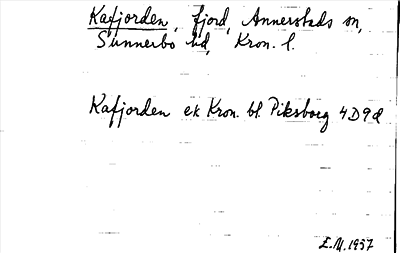 Kafjorden, fjord, Annerstads sn,
Sunnerbo hd, Kron. l.
Kafjorden ek Kron. bl. Piksborg 4D9d
E.M. 1957